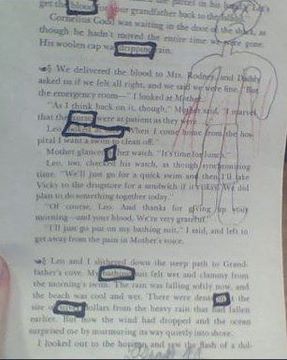 get the blood for your grandfather back to the
Cornelius Cod was waiting in the door of the shack, as
though he hadn't moved the entire time we were gone.
His woolen cap was dripping rain.
We delivered the blood to Mrs. Rodney, and Daddy
asked us if we felt all right, and we said we were fine. "But
the emergency room—" I looked at Mother.
"As I think back on it, though," Mother said, "I marvel
that the were as patient as they were
Leo When I come home from the hos-
pital I want a swim to clean off."
Mother glanced at her watch. "It's time for lunch."
Leo, too, checked his watch, as though synchronizing
time. "We'll just go for a quick swim and then I'll take
Vicky to the drugstore for a sandwich if it's okay. We did
plan to do something together today."
"Of course, Leo. And thanks for giving up your
morning—and your blood. We're very grateful."
"I'll just go put on my bathing suit," I said, and left to
get away from the pain in Mother's voice.
Leo and I slithered down the steep path to Grand-
father's cove. My bathing suit felt wet and clammy from
the morning's swim. The rain was falling softly now, and
the beach was cool and wet. There were dents in the
size of dollars from the heavy rain that had fallen
earlier. But now the wind had dropped and the ocean
surprised me by murmuring its way quietly into shore.
I looked out to the horizon and saw the flash of a dol-